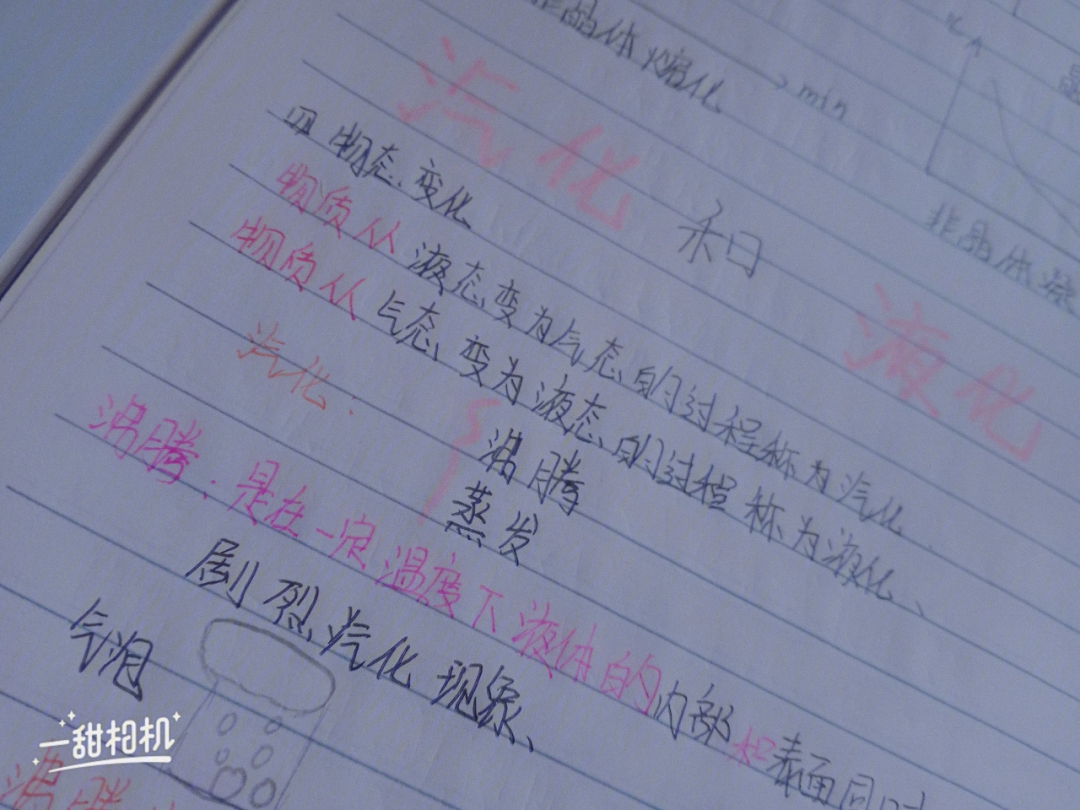 非晶体熔化
min
晶
非晶体凝
汽化 和 液化
四 物态变化
物质从液态变为气态的过程称为汽化.
物质从气态变为液态的过程称为液化、
汽化: 沸腾
蒸发
沸腾:是在一定温度下液体的内部和表面同时
剧烈汽化现象、
气泡
沸腾
一甜相机